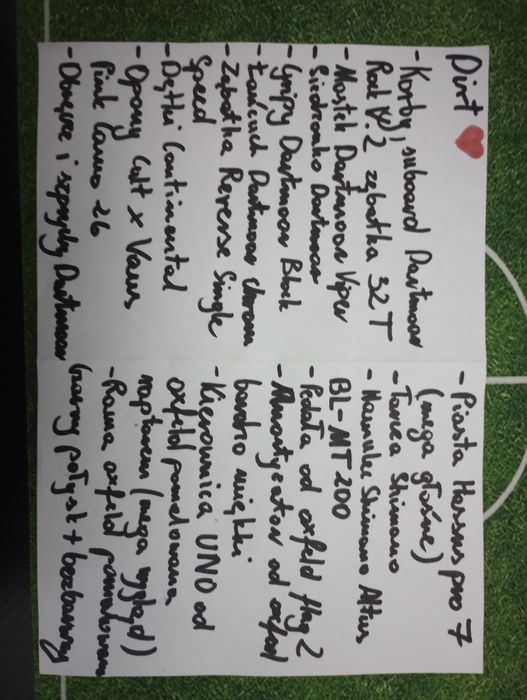 Dirt
- Korby, suboard Dartmoor
Rad V.2 zębatka 32T
- Mostek Dartmoor Viper
- Siedzonko Dartmoor
- Gripy Dartmoor Black
- Łańcuch Dartmoor Chrom
- Zębatka Reverse Single
Speed
- Dętki Continental
- Opony Cult x Vans
Pink Camo 26
- Obręcze i szprychy Dartmoor
- Piasta Hassns pro 7
(mega głośne)
- Tarcza Shimano
- Hamulec Shimano Altus
BL-MT200
- Pedała od oxfeld flay 2
- Amortyzator od oxfeld
bardzo miękki
- Kierownica UNO od
oxfeld pomalowana
(mega wygląd)
- Rama oxfeld pomalowana
(czarny połysk +